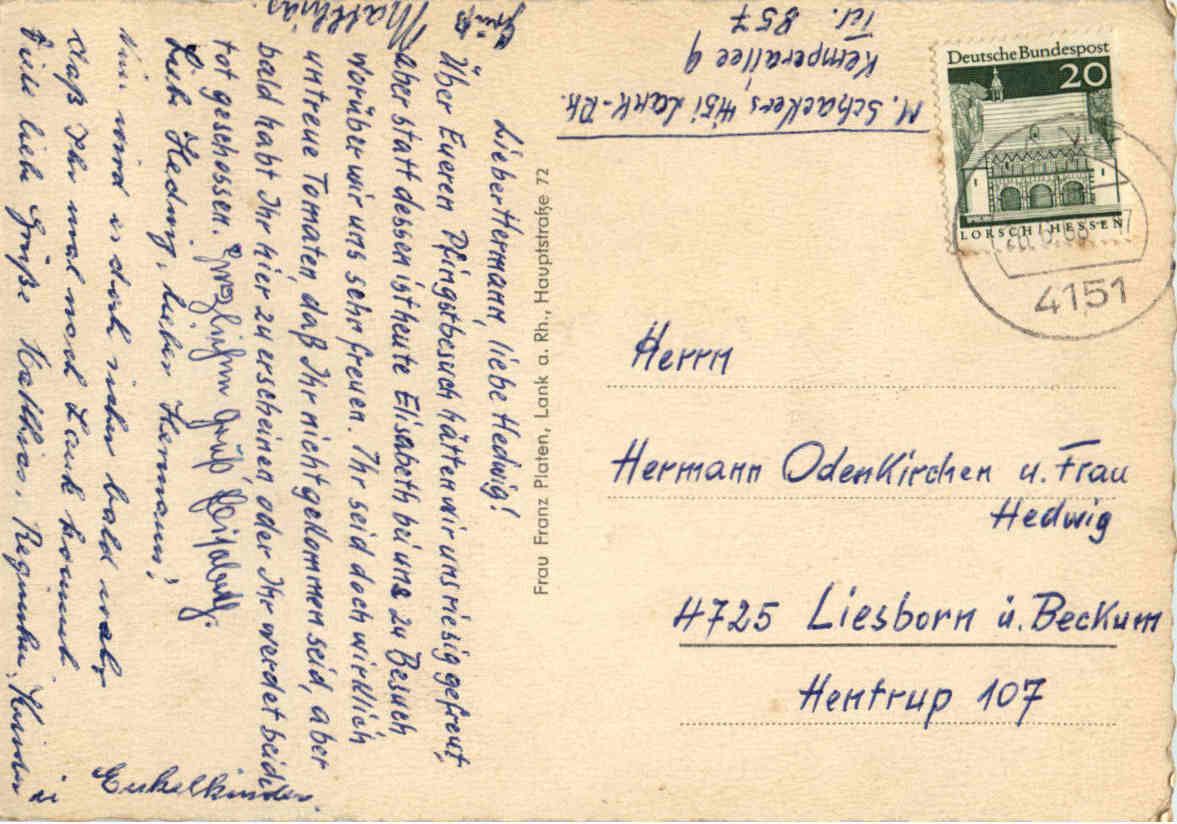 Lieber Hermann, liebe Hedwig!
Über Eueren Pfingstbesuch hätten wir uns riesig gefreut,
Aber statt dessen ist heute Elisabeth bei uns zu Besuch
worüber wir uns sehr freuen. Ihr seid doch wirklich
untreue Tomaten, daß Ihr nicht gekommen seid, aber
bald habt Ihr hier zu erscheinen oder Ihr werdet beide
tot geschossen. Herzlichen Gruß, Elisabeth.
Liebe Hedwig, lieber Hermann!
wird es doch sicher bald wahr,
daß Ihr mal nach Lank kommt
Viele liebe Grüße Matthias, Kinder
u
Enkelkinder.
Gruß
Matthias
M. Schackers 4151 Lank-Rh.
Kemperallee 9
Tel. 857
Frau Franz Platen, Lank a. Rh., Hauptstraße 72
Deutsche Bundespost
20
LORSCH/HESSEN
4151
Herrn
Hermann Odenkirchen u. Frau
Hedwig
4725 Liesborn ü. Beckum
Hentrup 107